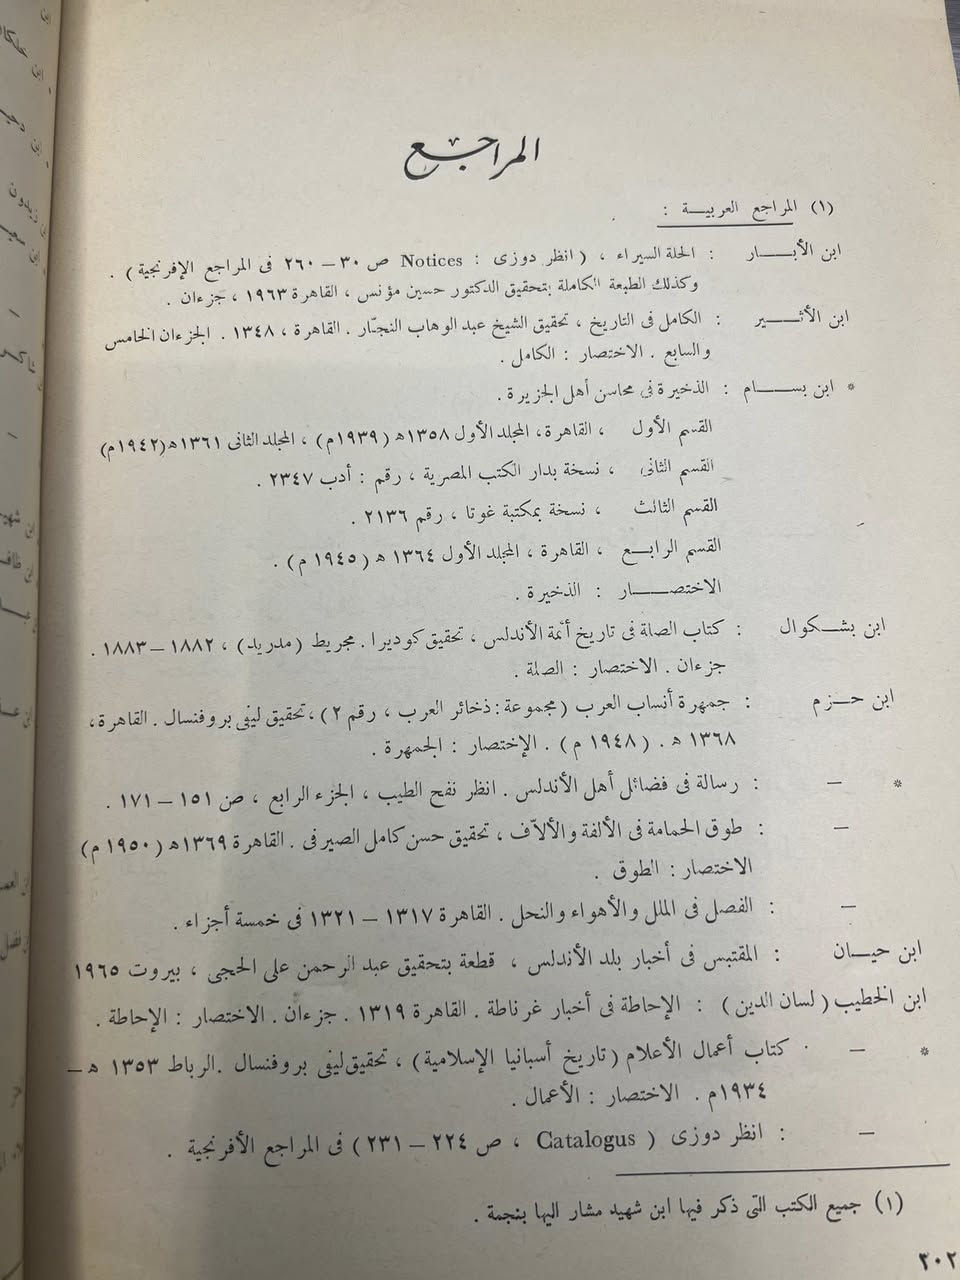 المراجع
(١) المراجع العربية :
ابن الأبار : الحلة السيراء ، ( انظر دوزى : Notices ص ٣٠ – ٢٦٠ فى المراجع الإفرنجية ) .
وكذلك الطبعة الكاملة بتحقيق الدكتور حسين مؤنس ، القاهرة ١٩٦٣ ، جزءان .
ابن الأثير : الكامل فى التاريخ ، تحقيق الشيخ عبد الوهاب النجّار . القاهرة ، ١٣٤٨ . الجزءان الخامس
والسابع . الاختصار : الكامل .
* ابن بسام : الذخيرة فى محاسن أهل الجزيرة .
القسم الأول ، القاهرة ، المجلد الأول ١٣٥٨ ه (١٩٣٩م) ، المجلد الثانى ١٣٦١ ه (١٩٤٢م)
القسم الثانى ، نسخة بدار الكتب المصرية ، رقم : أدب ٢٣٤٧ .
القسم الثالث ، نسخة بمكتبة غوتا ، رقم ٢١٣٦ .
القسم الرابع ، القاهرة ، المجلد الأول ١٣٦٤ ه ( ١٩٤٥ م ) .
الاختصار : الذخيرة .
ابن بشكوال : كتاب الصلة فى تاريخ أئمة الأندلس ، تحقيق كوديرا . مجريط (مدريد) ، ١٨٨٢ – ١٨٨٣ .
جزءان . الاختصار : الصلة .
ابن حزم : جمهرة أنساب العرب (مجموعة : ذخائر العرب ، رقم ٢) ، تحقيق ليفى بروفنسال . القاهرة ،
١٣٦٨ ه . ( ١٩٤٨ م ) . الإختصار : الجمهرة .
* – : رسالة فى فضائل أهل الأندلس . انظر نفح الطيب ، الجزء الرابع ، ص ١٥١ – ١٧١ .
– : طوق الحمامة فى الألفة والألاّف ، تحقيق حسن كامل الصيرفى . القاهرة ١٣٦٩ ه (١٩٥٠ م)
الاختصار : الطوق .
– : الفصل فى الملل والأهواء والنحل . القاهرة ١٣١٧ – ١٣٢١ فى خمسة أجزاء .
ابن حيان : المقتبس فى أخبار بلد الأندلس ، قطعة بتحقيق عبد الرحمن على الحجى ، بيروت ١٩٦٥
ابن الخطيب ( لسان الدين ) : الإحاطة فى أخبار غرناطة . القاهرة ١٣١٩ . جزءان . الاختصار : الإحاطة .
* – . كتاب أعمال الأعلام ( تاريخ أسبانيا الإسلامية ) ، تحقيق ليفى بروفنسال . الرباط ١٣٥٣ ه –
١٩٣٤م . الاختصار : الأعمال .
– : انظر دوزى ( Catalogus ، ص ٢٢٤ – ٢٣١ ) فى المراجع الأفرنجية .
(١) جميع الكتب التى ذكر فيها ابن شهيد مشار اليها بنجمة .
٢٠٢